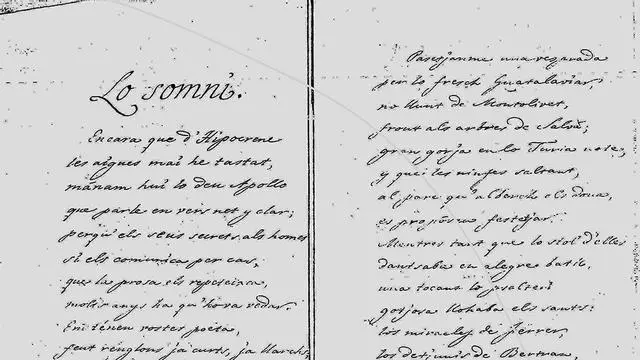 Lo somni.
Encara que d'Hipocrene
les aigues mai he tastat,
mánam hui lo deu Apollo
que parle en vers net y clar;
perqu'els seus secrets als homes
si els comunica per cas,
que la prosa els
molts anys ha qu'hora vedar.
Em tenen rostes poeta,
fent renglons ja curts, ja llarchs
Pasejanme una vegada
per lo fresch Guadalaviar,
no llunt de Montolivet,
front als arbres de Salvá;
gran gorja en lo Turia note,
y que les ninfes saltant,
al pare
es festejar.
Mentres tant que lo stol d'elles
dantsaba en alegre
una tocant lo psalteri
gorjosa llohaba els sants:
los miracles de Ferrer,
los de Lluis de Bertran,